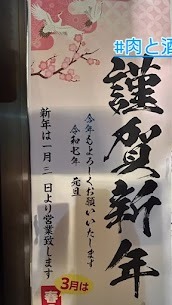 #肉と酒
謹賀新年
今年もよろしくお願いいたします
令和七年 元旦
新年は一月三日より営業致します
3月は
春